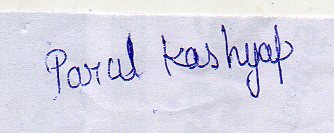 Parul Kashyap